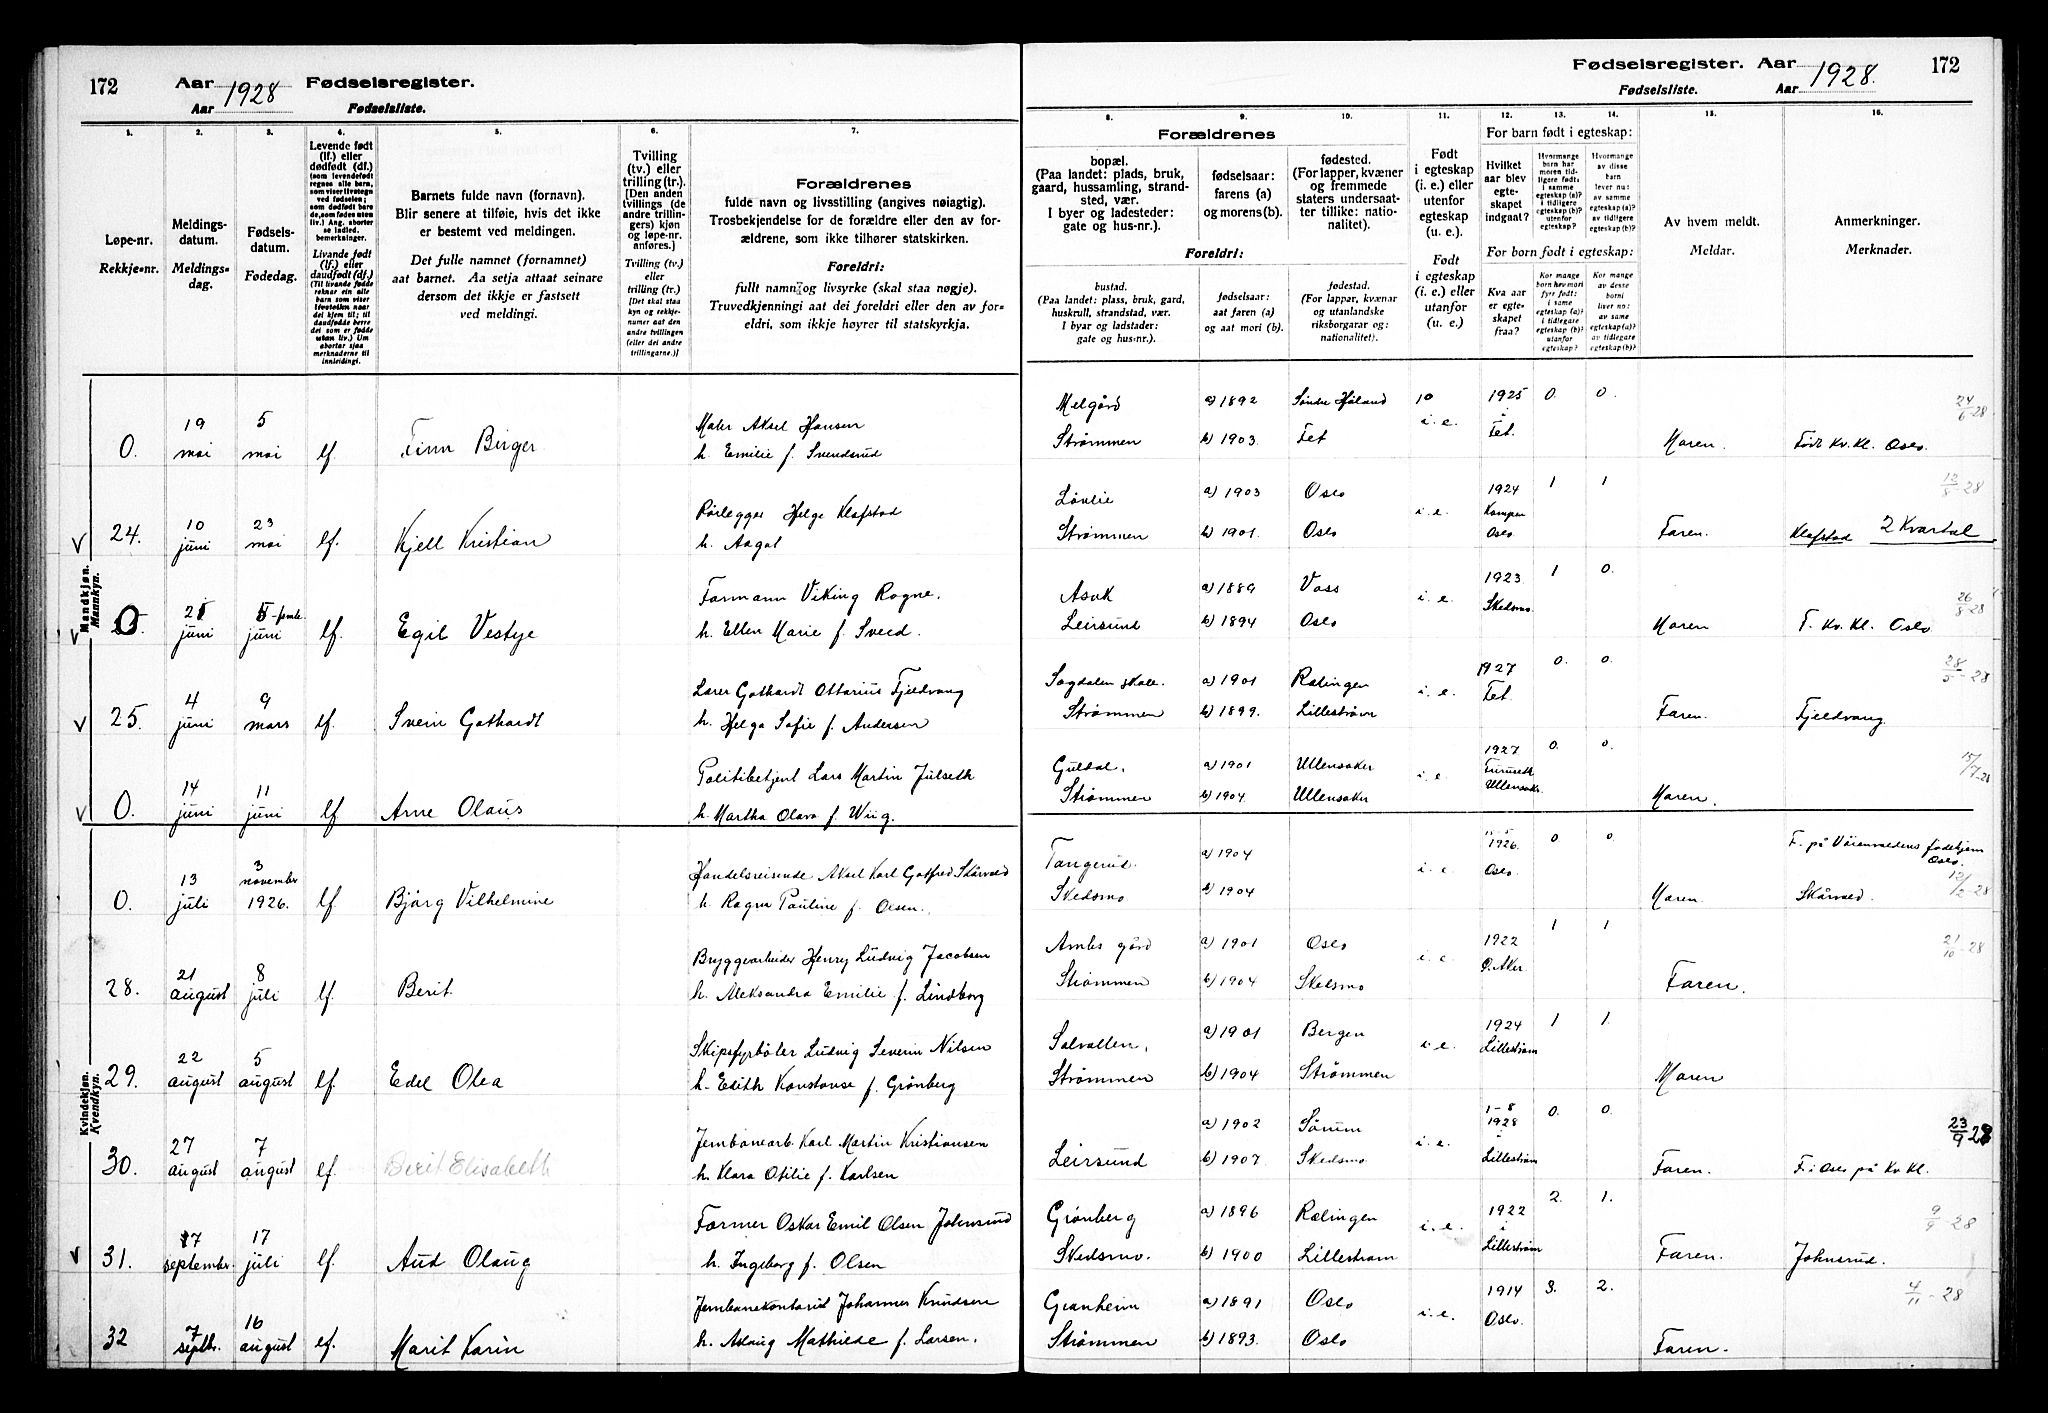 172
Aar 1928 Fødselsregister.
Aar Fødselsliste.
Fødselsregister. Aar 1928. 172
Fødselsliste. Aar
1. 2. 3. 4. 5. 6. 7.
8. 9. 10. 11. 12. 13. 14. 15. 16.
Løpe-nr.
Rekkje-nr.
Meldings-
datum.
Meldings-
dag.
Fødsels-
datum.
Fødedag.
Levende født
(lf.) eller
dødfødt (df.)
Livande født
(lf.) eller
daudfødt (df.)
Barnets fulde navn (fornavn).
Blir senere at tilføie, hvis det ikke
er bestemt ved meldingen.
Det fulle namnet (fornamnet)
aat barnet. Aa setja attaat seinare
dersom det ikkje er fastsett
ved meldingi.
Tvilling
(tv.) eller
trilling (tr.).
[Den anden
tvillings (de
andre trillin-
gers) kjøn
og løpe-nr.
anføres.]
Tvilling (tv.)
eller
trilling (tr.)
[Det skal staa
kyn og rekkje-
numer aat den
andre tvillingen
(eller dei andre
trillingarne.)]
Forældrenes
fulde navn og livsstilling (angives nøiagtig).
Trosbekjendelse for de forældre eller den av for-
ældrene, som ikke tilhører statskirken.
Foreldri:
fullt namn og livsyrke (skal staa nøgje).
Truvedkjenningi aat dei foreldri eller den av for-
eldri, som ikkje høyrer til statskyrkja.
Forældrenes
bopæl.
(Paa landet: plads, bruk,
gaard, hussamling, strand-
sted, vær.
I byer og ladesteder:
gate og hus-nr.).
fødselsaar:
farens (a)
og morens (b).
fødested.
(For lapper, kvæner
og fremmede
staters undersaat-
ter tillike: natio-
nalitet).
Foreldri:
bustad.
(Paa landet: plass, bruk, gard,
huskrull, strandstad, vær.
I byar og ladstader:
gate og hus-nr.).
fødselsaar:
aat faren (a)
og aat mori (b).
fødestad.
(For lappar, kvænar
og utanlandske
riksborgarar og:
nationalitet).
Født
i egteskap
(i. e.) eller
utenfor
egteskap
(u. e.).
Født
i egteskap
(i. e.) eller
utanfor
(u. e.)
For barn født i egteskap:
Hvilket
aar blev
egte-
skapet
indgaat?
For born født i egteskap:
Kva aar
er egte-
skapet
fraa?
Av hvem meldt.
Meldar.
Anmerkninger.
Merknader.
Mandkjøn.
Mannkyn.
0. 19 mai 5 mai lf. Finn Birger
Maler Aksel Hansen
h. Emilie f. Svendsrud
Melgård a) 1892 Søndre Høland 10 i. e. 1925 i Fet. 0. 0. 24/6-28
Strømmen b) 1903. Fet Moren. Født Kv. Kl. Oslo.
V 24. 10 juni 23 mai lf. Kjell Kristian
Rørlegger Helge Klafstad
h. Aagot
Løvlie a) 1903 Oslo i. e. 1924 Kampen Oslo 1 1 12/8-28
Strømmen b) 1901. Oslo Faren. Klafstad 2 Kvartal
V 21 juni 5 juni lf. Egil Vestye
Formann Viking Rogne.
h. Ellen Marie f. Sveed.
Asak a) 1889 Voss i. e. 1923 Skedsmo. 1 0. 26/8-28
Leirsund b) 1894 Oslo Moren F. Kv. Kl. Oslo
V 25. 4 juni 9 mars lf. Svein Gothardt
Lærer Gothardt Ottarius Fjeldvang
h. Helga Sofie f. Andersen
Sagdalen skole. a) 1901 Rælingen i. e. 1927 Fet. 0. 0. 28/5-28
Strømmen b) 1899. Lillestrøm Faren. Fjeldvang.
V 0. 14 juni 11 juni lf Arne Olaus
Politibetjent Lars Martin Julseth
h. Martha Olava f. Wiig.
Guldal. a) 1901 Ullensaker i. e. 1927 Furuseth Ullensaker. 0. 0. 15/7-28
Strømmen b) 1904. Ullensaker Moren.
Kvindekjøn.
Kvendkyn.
0. 13 juli 3 november 1926. lf Bjørg Vilhelmine
Handelsreisende Aksel Karl Gotfred Skårvold
h. Ragna Pauline f. Olsen.
Tangerud. a) 1904 i. e. 1926. Oslo. 0 0. F. på fødehjem Oslo. 12/2-28
Skedsmo b) 1904 Moren. Skårvold.
28. 21 august 8 juli lf Berit.
Bryggearbeider Henry Ludvig Jacobsen
h. Aleksandra Emilie f. Lindborg
gård a) 1901 Oslo i. e. 1922 Ø. Aker. 1 1 21/10-28
Strømmen b) 1904 Skedsmo Faren.
29. 22 august 5 august lf. Edel Olea
Skipsfyrbøter Ludvig Severin Nilsen
h. Edith Konstanse f. Grønberg
Solvollen, a) 1901 Bergen i. e. 1924 Lillestrøm 1 1.
Strømmen b) 1904 Strømmen Moren
30. 27 august 7 august lf. Berit Elisabeth
Jernbanearb. Karl Martin Kristiansen
h. Klara Otilie f. Karlsen
Leirsund a) 1902 Sørum i. e. 1-8 1928 i Lillestrøm 0. 0. 23/9 28
b) 1907. Skedsmo. Faren. F. i Oslo på Kv Kl.
V 31. 7 september. 17 juli lf. Aud Olaug
Former Oskar Emil Olsen Johnsrud
h. Ingeborg f. Olsen
Grønberg a) 1896 Rælingen i. e. 1922 i Lillestrøm 2. 1. 9/9-28
Skedsmo. b) 1900 Lillestrøm Faren. Johnsrud.
32 7 septbr. 16 august lf. Marit Karin
Jernbanekontorist Johannes Knudsen
h. Aslaug Mathilde f. Larsen.
Granheim a) 1891 Oslo i. e. 1914 Oslo. 3. 2. 4/11-28
Strømmen b) 1893. Oslo Faren.